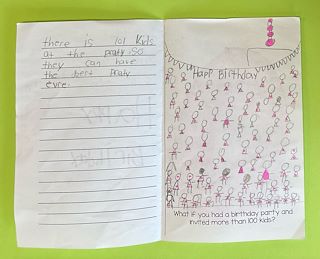 there is 101 Kids
at the praty. so
they can have
the best praty
evre.
Happy Birthday
What if you had a birthday party and
invited more than 100 kids?